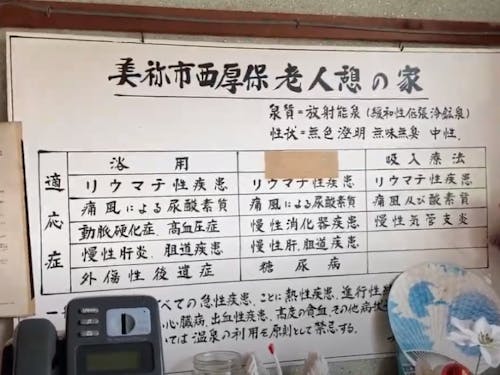 美祢市西厚保老人憩の家
泉質=放射能泉(緩和性低張冷鉱泉)
性状=無色澄明 無味無臭 中性.
適応症
浴用 吸入療法
リウマチ性疾患 リウマチ性疾患 リウマチ性疾患
痛風による尿酸素質 痛風による尿酸素質 痛風及び酸素質
動脈硬化症、高血圧症 慢性消化器疾患 慢性気管支炎
慢性肝炎、胆道疾患 慢性肝、胆道疾患
外傷性後遺症 糖尿病
べての急性疾患、ことに熱性疾患、進行性
心臓病、出血性疾患、高度の貧血、その他病
いては温泉の利用を原則として禁忌する。